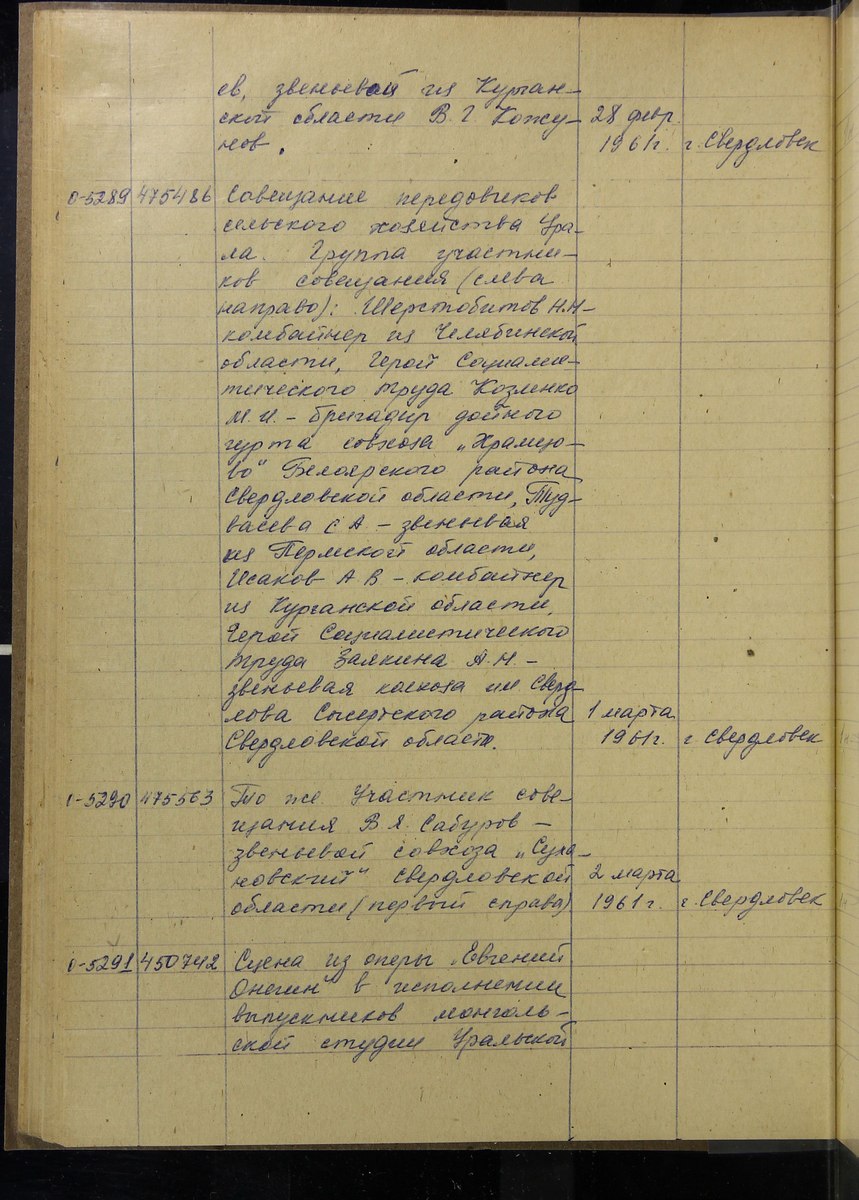 ев, звеньевой из Курган-
ской области В. Г. Кожу- 28 февр.
нов. 1961г. г. Свердловск
0-5289 475486 Совещание передовиков
сельского хозяйства Ура-
ла. Группа участни-
ков совещания (слева
направо): Шерстобитов Н.Н-
комбайнер из Челябинской
области, Герой Социалис-
тического труда Козленко
М. И. - бригадир дойного
гурта совхоза „Храмцо-
во" Белоярского района
Свердловской области, Туд-
васева С А - звеньевая
из Пермской области,
Исаков А В - комбайнер
из Курганской области,
Герой Социалистического
труда Заякина А. Н. -
звеньевая колхоза им Сверд-
лова Сысертского района 1 марта
Свердловской област. 1961г. г. Свердловск
0-5290 475563 То же. Участник сове-
щания В. Я. Сабуров -
звеньевой совхоза „Суха-
новский" Свердловской 2 марта
области (первый справа) 1961 г. г. Свердловск
0-5291 450742 Сцена из оперы „Евгений
Онегин" в исполнении
выпускников монголь-
ской студии Уральской